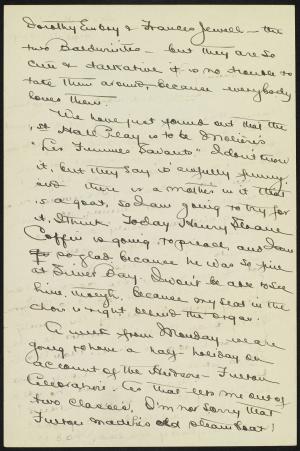 Dorothy Embry & Frances Jewell - the
two Baldwinites - but they are so
cute & talkative it is no trouble to
take them around, because everybody
loves them.
We have just found out that the
1st Hall Play is to be Moliere's
"Les Femmes Savants" I don't know
it, but they say is awfully funny,
and there is a mother in it that
is a goat, so I am going to try for
it, I think. Today Henry Sloane
Coffin is going to preach, and I am
so glad because he was so fine
at Silver Bay. I won't be able to see
him, though, because my seat in the
choir is right behind the organ.
A week from Monday we are
going to have a half-holiday on
account of the Hudson-Fulton
Celebration. As that lets me out of
two classes, I'm not sorry that
Fulton made his old steamboat!